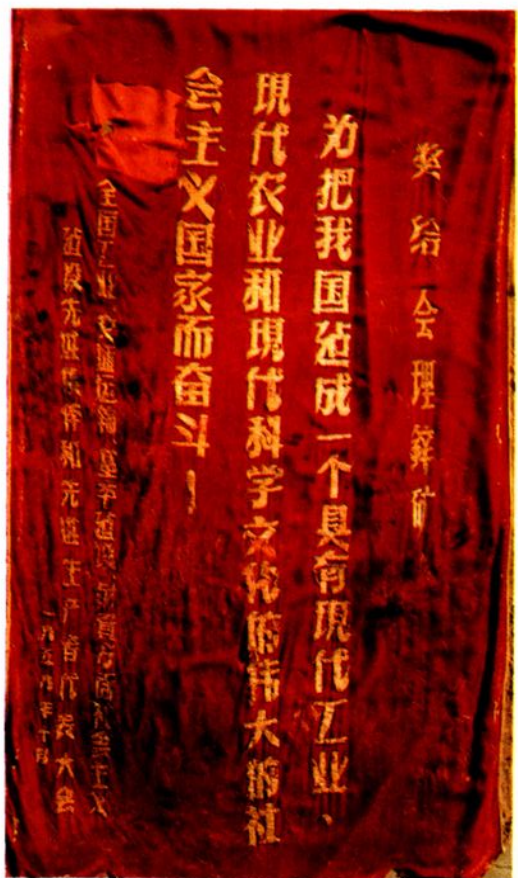 奖给会理锌矿
为把我国造成一个具有现代工业、
现代农业和现代科学文化的伟大的社
会主义国家而奋斗！
全国工业、交通运输、基本建设、财贸方面社会主义
建设先进集体和先进生产者代表大会
一九五九年十月